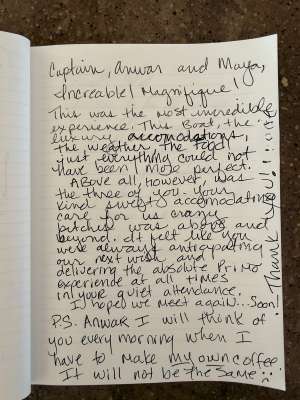 Captain, Anwar and Maya,
Increable! Magnifique!
This was the most incredible
experience. This Boat, the
luxury accomodations,
the weather, the food
just everything could not
have been more perfect.
Above all, however, was
the three of you. Your
kind sweet accomodating
care for us crazy
bitches was above and
beyond. It felt like you
were always anticipating
our next wish and
delivering the absolute Primo
experience at all times
in your quiet attendance.
I hope we meet again... Soon!
P.S. Anwar I will think of
you every morning when I
have to make my own coffee
It will not be the same
Thank you!